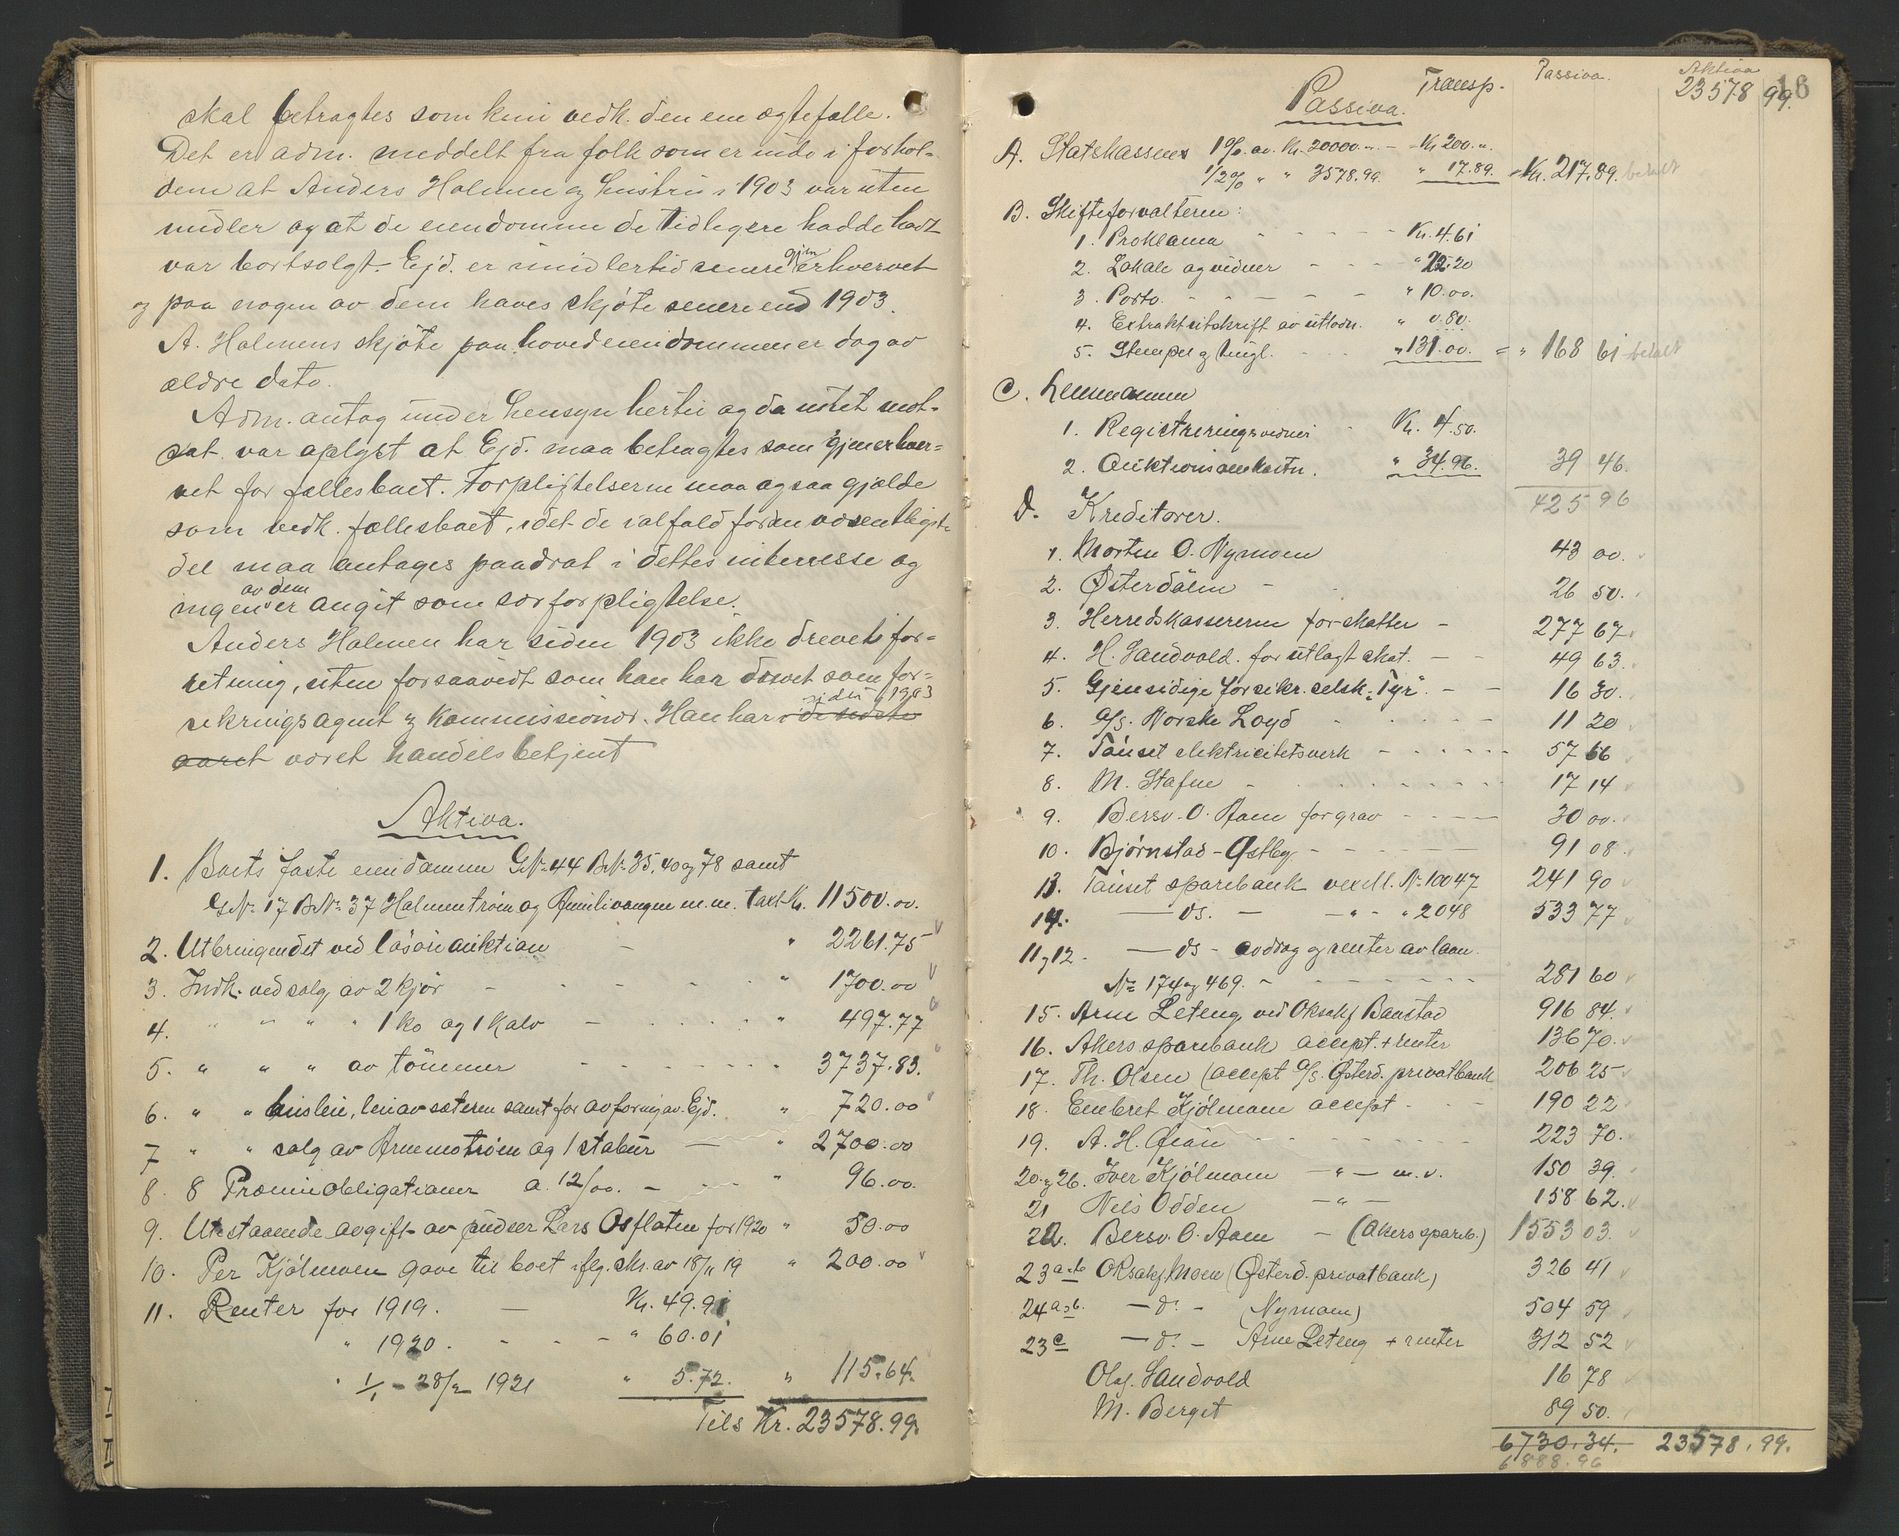 skal betragtes som kun vedk. den ene ægtefælle.
Det er adm. meddelt fra folk som er inde i forhol-
dene at Anders Holmen og hustru i 1903 var uten
midler og at de eiendomme de tidligere hadde hadt
var bortsolgt. Ejd. er imidlertid senere gjen erhvervet
og paa nogen av dem haves skjöte senere end 1903.
A. Holmens skjöte paa hovedeiendommen er dog av
ældre dato.
Adm. antog under hensyn hertil og da intet mot-
sat var oplyst at Ejd. maa betragtes som gjenerhver-
vet for fællesboet. Forpligtelserne maa ogsaa gjælde
som vedk. fællesboet, idet de ialfald for den væsentligste
del maa antages paadrat i dettes interresse og
ingen av dem er angit som særforpligtelse.
Anders Holmen har siden 1903 ikke drevet for-
retning, uten forsaavidt som han har drevet som for-
sikringsagent og kommissionær. Han har siden 1903 i de sidste
aaret været handelsbetjent
Aktiva.
1. Boets faste eiendomme G.No. 44 B.No. 35, 40 og 78 samt
G.No. 17 B.No. 37 Holmentrøen og Emilivangen m.m. taxt Kr. 11500.00.
2. Utbringendet ved løsøreauktion - " 2261.75
3. Indk. ved salg av 2 kjör - " 1700.00
4. " " " " 1 ko og 1 kalv - " 497.77
5. " " " av tömmer " 3737.83.
6. " " husleie, leie av sæteren samt for avforing av Ejd. " 720.00
7 " " salg av Armmotrøen og 1 stabur - " 2700.00
8. 8 Præmieobligationer a. 12/00. - " 96.00.
9. Utestaaende avgift av pudser Lars Osflaten for 1920 " 50.00
10. Per Kjölmoen gave til boet iflg. skr. av 18/11 19 " 200.00
11. Renter for 1919. - Kr. 49.91
" 1920. - - - " 60.01
" 1/1 - 28/2 1921 " 5.72. " 115.64.
Tils Kr. 23578.99.
I
II
Passiva. Transp. Passiva. Aktiva 23578 99. 18
A. Statskassen 1% av Kr. 20000.00 - Kr 200.00
1/2% " " 3578.99. " 17.89. = Kr. 217.89. betalt
B. Skifteforvalteren:
1. Proklama - - - Kr. 4.61
2. Lokale og vidner - - - " 22.20
3. Porto. - - - " 10.00.
4. Extraktutskrift av utlodn. " 0.80.
5. Stempel og tingl. - - " 131.00. = " 168 61 betalt
C. Lensmannen
1. Registreringsvidner - Kr. 4.50.
2. Auktionsomkostn. " 34.96. 39 46.
425 96
D. Kreditorer.
1. Morten O. Nymoen 43 00.
2. Østerdölen - 26 50.
3. Herredskassereren for skatter - 277 67.
4. H. Sandvold. for utlagt skat. - - 49 63.
5. Gjensidige forsikr. selsk. "Tyr". - - 16 30.
6. A/S. Norske Loyd - - - 11 20
7. Tönset elektricitetsverk - - - 57 66
8. M. Stafne - - - 17 14
9. Bersv. O. Aam for grav - - - 30 00.
10. Björnstad-Østby. - - - 91 08.
13. Tönset sparebank vexell. No. 10047 241 90
14. - ds. - - " - " 2048 533 77
11 og 12. - ds - avdrag og renter av laan.
No 174 og 469. - - - 281 60
15. Arne Leteng ved Oksakf. Baastad 916 84.
16. Akers sparebank accept. + renter 136 70.
17. Th. Olsen (accept A/S. Østerd. privatbank 206 25
18. Embret Kjölmoen accept - - 190 22
19. A. H. Øian - - - 223 70.
20 og 26. Iver Kjölmoen - " - m.v. 150 39.
21 Nils Odden - " - 158 62.
22. Bersv. O. Aam - (Akers spareb.) 1553 03.
23 a-b OKsakf. Moen (Østerd. privatbank) 326 41
24 a-b. - d. - (Nymoen) 504 59
23 c - d. - Arne Leteng + renter 312 52
Olaf. Sandvold 16 78
M. Berget 89 50.
6730.34. 23578.99.
6888.96